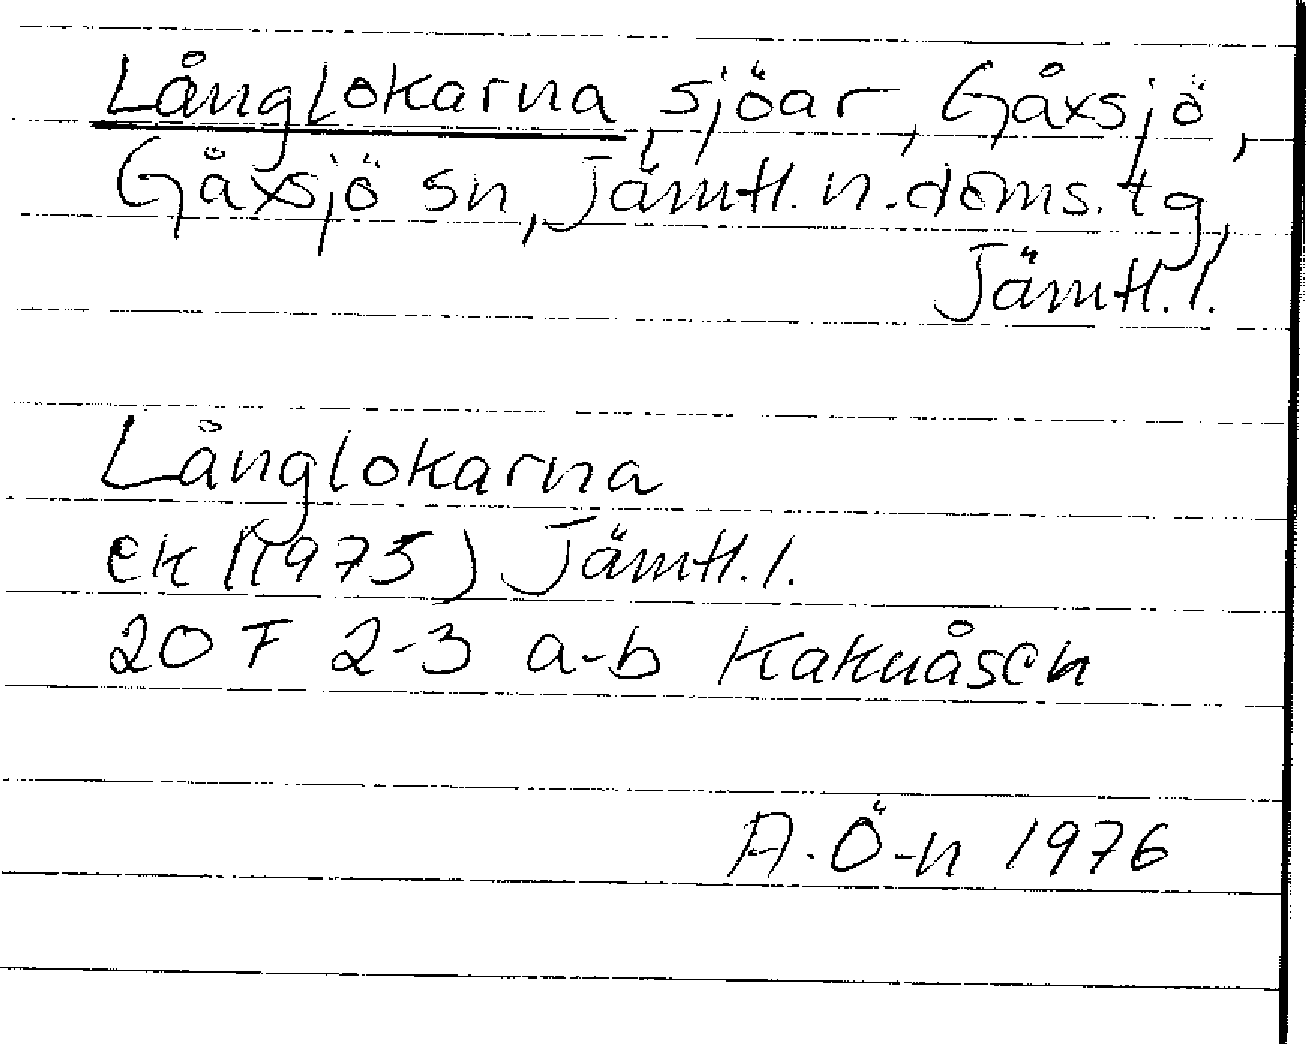 Långlokarna, sjöar, Gåxsjö,
Gåxsjö sn, Jämtl. n. doms. tg,
Jämtl. l.
Långlokarna
ek (1975) Jämtl. l.
20 F 2-3 a-b Kakuåsen
A. Ö-n 1976